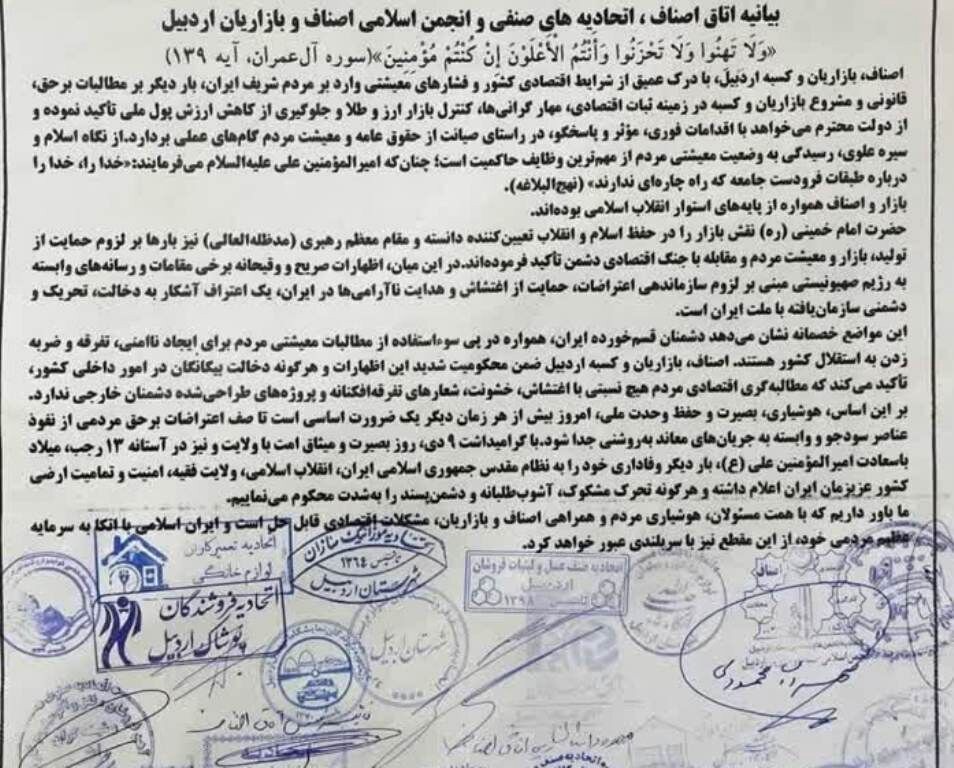 بیانیه اتاق اصناف ، اتحادیه های صنفی و انجمن اسلامی اصناف و بازاریان اردبیل
«وَلَا تَهِنُوا وَلَا تَحْزَنُوا وَأَنْتُمُ الْأَعْلَوْنَ إِنْ كُنْتُمْ مُؤْمِنِينَ»(سوره آل‌عمران، آیه ۱۳۹)
اصناف، بازاریان و کسبه اردبیل، با درک عمیق از شرایط اقتصادی کشور و فشارهای معیشتی وارد بر مردم شریف ایران، بار دیگر بر مطالبات برحق،
قانونی و مشروع بازاریان و کسبه در زمینه ثبات اقتصادی، مهار گرانی‌ها، کنترل بازار ارز و طلا و جلوگیری از کاهش ارزش پول ملی تأکید نموده و
از دولت محترم می‌خواهد با اقدامات فوری، مؤثر و پاسخگو، در راستای صیانت از حقوق عامه و معیشت مردم گام‌های عملی بردارد. از نگاه اسلام و
سیره علوی، رسیدگی به وضعیت معیشتی مردم از مهم‌ترین وظایف حاکمیت است؛ چنان‌که امیرالمؤمنین علی علیه‌السلام می‌فرمایند:«خدا را، خدا را
درباره طبقات فرودست جامعه که راه چاره‌ای ندارند» (نهج‌البلاغه).
بازار و اصناف همواره از پایه‌های استوار انقلاب اسلامی بوده‌اند.
حضرت امام خمینی (ره) نقش بازار را در حفظ اسلام و انقلاب تعیین‌کننده دانسته و مقام معظم رهبری (مدظله‌العالی) نیز بارها بر لزوم حمایت از
تولید، بازار و معیشت مردم و مقابله با جنگ اقتصادی دشمن تأکید فرموده‌اند.در این میان، اظهارات صریح و وقیحانه برخی مقامات و رسانه‌های وابسته
به رژیم صهیونیستی مبنی بر لزوم سازماندهی اعتراضات، حمایت از اغتشاش و هدایت ناآرامی‌ها در ایران، یک اعتراف آشکار به دخالت، تحریک و
دشمنی سازمان‌یافته با ملت ایران است.
این مواضع خصمانه نشان می‌دهد دشمنان قسم‌خورده ایران، همواره در پی سوءاستفاده از مطالبات معیشتی مردم برای ایجاد ناامنی، تفرقه و ضربه
زدن به استقلال کشور هستند. اصناف، بازاریان و کسبه اردبیل ضمن محکومیت شدید این اظهارات و هرگونه دخالت بیگانگان در امور داخلی کشور،
تأکید می‌کند که مطالبه‌گری اقتصادی مردم هیچ نسبتی با اغتشاش، خشونت، شعارهای تفرقه‌افکنانه و پروژه‌های طراحی‌شده دشمنان خارجی ندارد.
بر این اساس، هوشیاری، بصیرت و حفظ وحدت ملی، امروز بیش از هر زمان دیگر یک ضرورت اساسی است تا صف اعتراضات برحق مردمی از نفوذ
عناصر سودجو و وابسته به جریان‌های معاند به‌روشنی جدا شود.با گرامیداشت ۹ دی، روز بصیرت و میثاق امت با ولایت و نیز در آستانه ۱۳ رجب، میلاد
باسعادت امیرالمؤمنین علی (ع)، بار دیگر وفاداری خود را به نظام مقدس جمهوری اسلامی ایران، انقلاب اسلامی، ولایت فقیه، امنیت و تمامیت ارضی
کشور عزیزمان ایران اعلام داشته و هرگونه تحرک مشکوک، آشوب‌طلبانه و دشمن‌پسند را به‌شدت محکوم می‌نماییم.
ما باور داریم که با همت مسئولان، هوشیاری مردم و همراهی اصناف و بازاریان، مشکلات اقتصادی قابل حل است و ایران اسلامی با اتکا به سرمایه
عظیم مردمی خود، از این مقطع نیز با سربلندی عبور خواهد کرد.
اتحادیه تعمیرکاران
لوازم خانگی
تاسیس ۱۳۶۴
شهرستان اردبیل
اتحادیه صنف عسل و لبنیات فروشان
اردبیل
تاسیس ۱۳۹۸
اتحادیه فروشندگان
پوشاک اردبیل
شهرستان اردبیل
اصناف